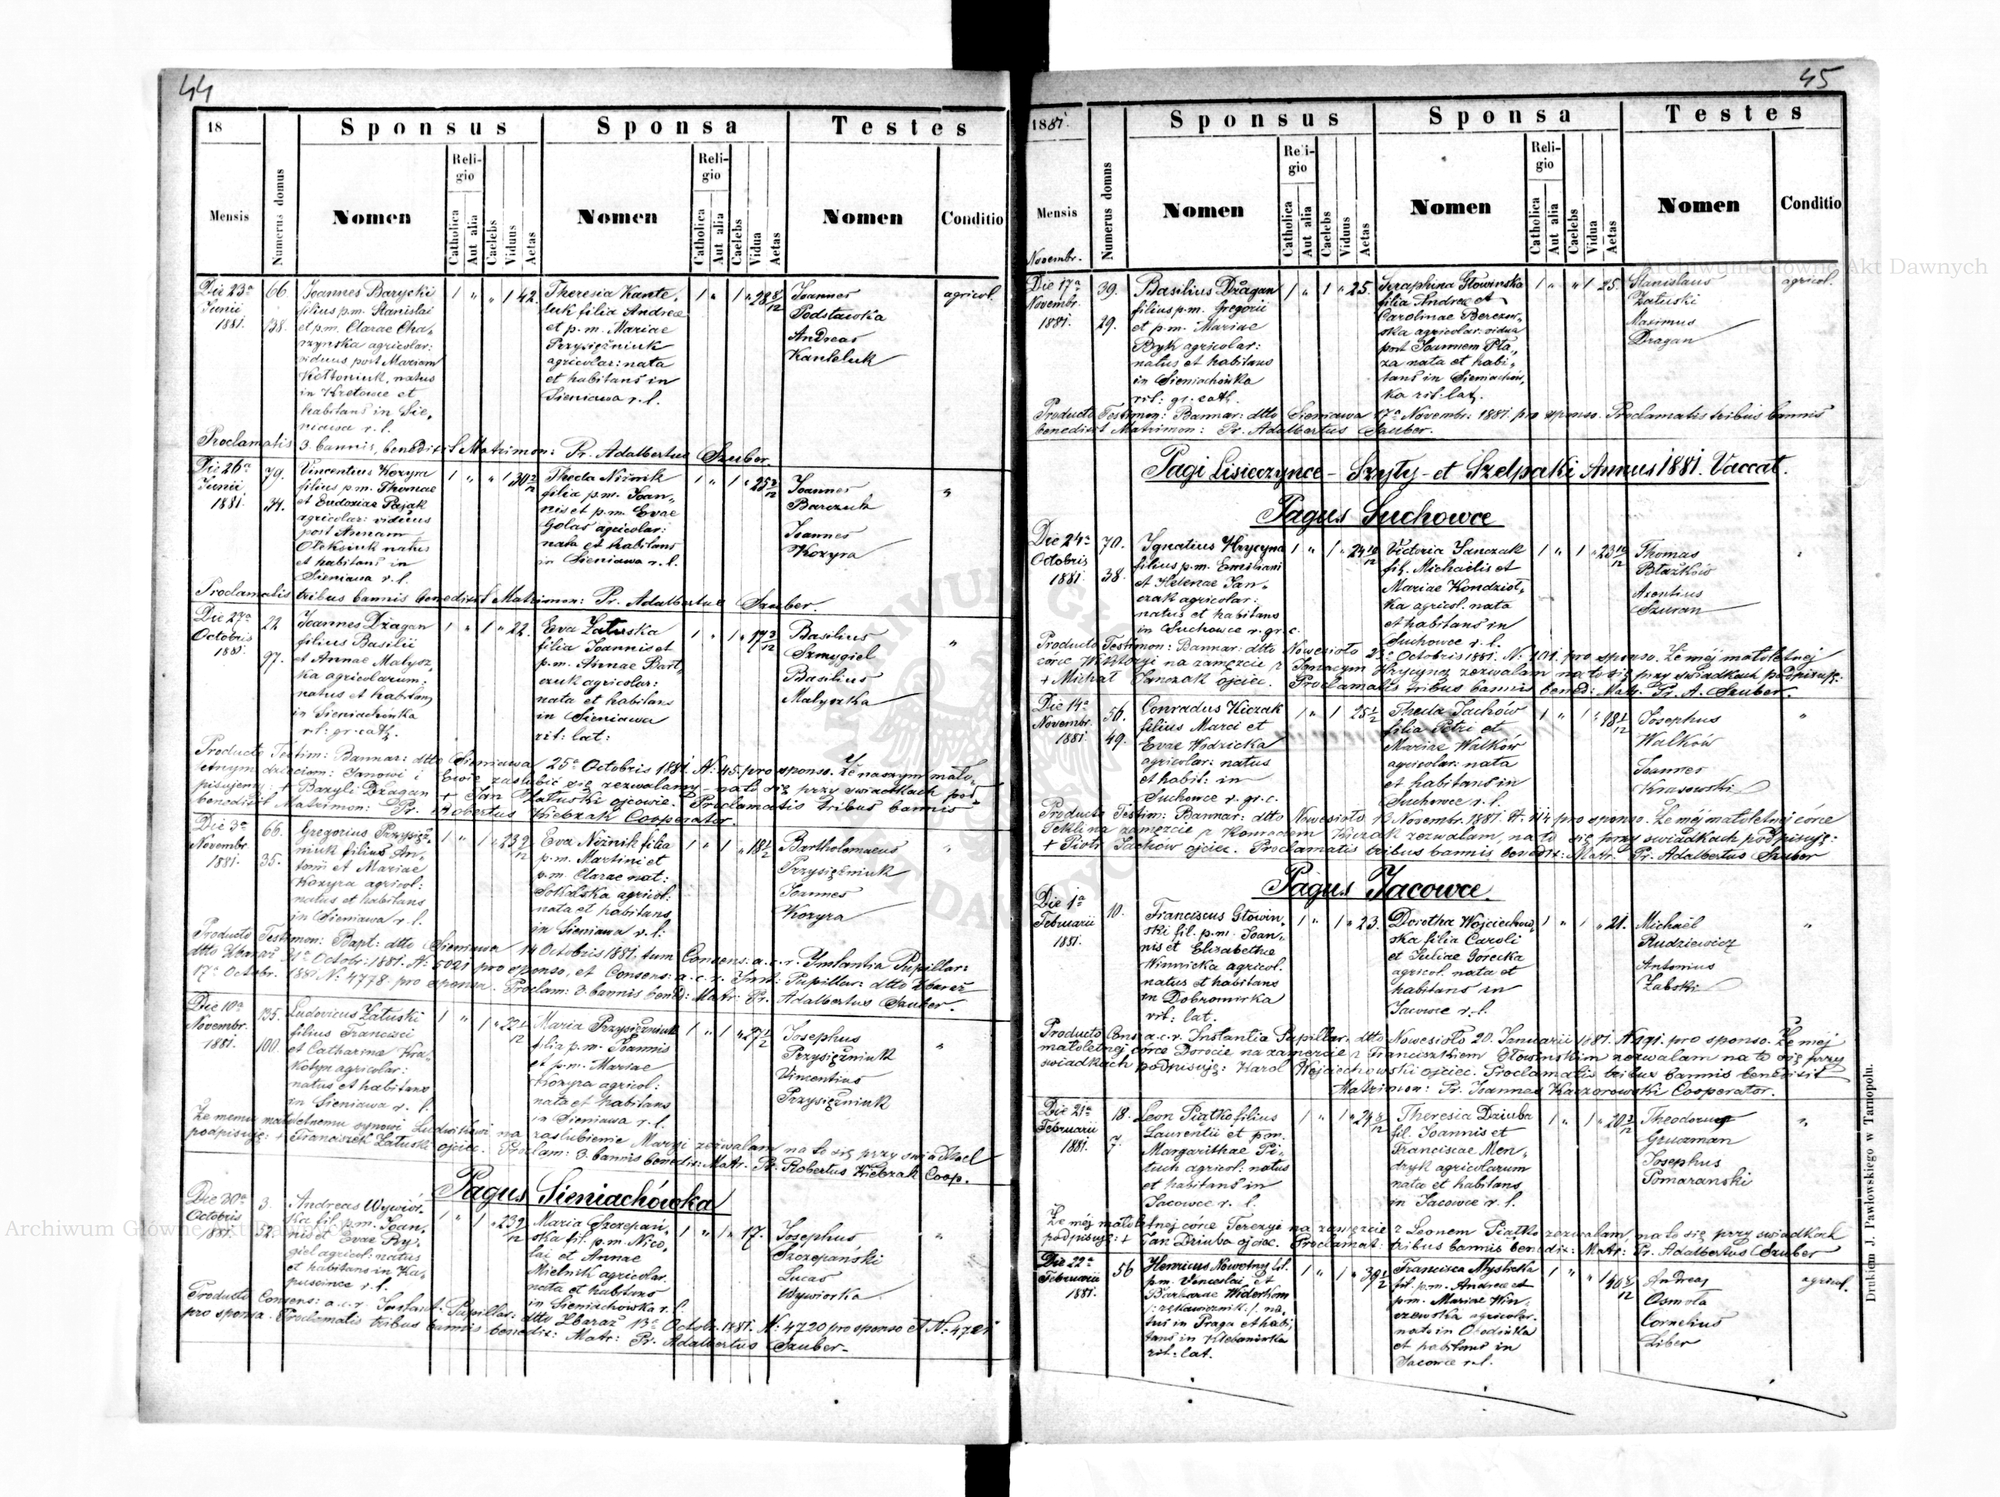 44
18
Sponsus
Sponsa
Testes
Mensis
Numerus domus
Nomen
Religio
Catholica
Aut alia
Caelebs
Viduus
Aetas
Nomen
Religio
Catholica
Aut alia
Caelebs
Vidua
Aetas
Nomen
Conditio
Die 23a
Junii
1881.
66.
138.
Joannes Barycki
filius p.m. Stanislai
et p.m. Clarae Cha-
rzynska agricolar:
viduus post Mariam
natus
in Kretowce et
habitans in Sie-
niawa r. l.
1 " " 1 42.
Theresia Kante-
luk filia Andreae
et p.m. Mariae
Przysiężniuk
agricolar: nata
et habitans in
Sieniawa r. l.
1 " 1 " 28 8/12
Joannes
Podstawka
Andreas
Kanteluk
agricol.
Proclamatis 3. bannis, benedixit Matrimon: Pr. Adalbertus Szuber.
Die 26a
Junii
1881.
79.
34.
Vincentius Kozyra
filius p.m. Thomae
et Eudoxiae Pająk
agricolar: viduus
post Annam
Oleksiuk natus
et habitans in
Sieniawa r. l.
Thecla Niżnik
filia p.m. Joan-
nis et p.m. Evae
Golas agricolar:
nata et habitans
in Sieniawa r. l.
Joannes
Barczuk
Joannes
Kozyra
"
Proclamatis tribus bannis benedixit Matrimon: Pr. Adalbertus Szuber.
Die 27a
Octobris
1881.
22
97.
Joannes Dragan
filius Basilii
et Annae Malysz-
ka agricolarum:
natus et habitans
in Sieniachówka
rit: gr. cath.
1 " 1 " 22.
Eva Załuska
filia Joannis et
p.m. Annae Bart-
czuk agricolar:
nata et habitans
in Sieniawa
rit: lat:
Basilius
Szmygiel
Basilius
Malyszka
"
Producto Testim: Bannar: dtto Sieniawa 25a Octobris 1881. N: 45. pro sponso. Że naszym mało-
letnym dzieciom: Janowi i Ewie zaślubić się zezwalamy na to się przy świadkach pod-
pisujemy: + Bazyli Dragan + Jan Załuski ojcowie. Proclamatis tribus bannis
benedixit Matrimon: Pr. Robertus Cooperator.
Die 3a
Novembr.
1881.
66.
35.
Gregorius Przysięż-
niuk filius An-
tonii et Mariae
Kozyra agricol:
natus et habitans
in Sieniawa r. l.
Eva Niżnik filia
p.m. Martini et
p.m. Clarae nat:
agricol:
nata et habitans
in Sieniawa r. l.
Bartholomaeus
Przysiężniuk
Joannes
Kozyra
"
Producto Testimon: Bapt: dtto Sieniawa 14 Octobris 1881. tum Consens: a. c. r. Instantia Pupillar:
dtto Zbaraż 21a Octobr: 1881. N: 5021 pro sponso, et Consens: a. c. r. Inst: Pupillar: dtto Zbaraż
17a Octobr. 1881. N: 4778. pro sponsa. Proclam: 3. bannis bened: Matr: Pr. Adalbertus Szuber.
Die 10a
Novembr.
1881.
135.
100.
Ludovicus Załuski
filius Francisci
et Catharinae Kra-
kotyn agricolar:
natus et habitans
in Sieniawa r. l.
Maria Przysiężniuk
filia p.m. Joannis
et p.m. Mariae
Kozyra agricol:
nata et habitans
in Sieniawa r. l.
Josephus
Przysiężniuk
Vincentius
Przysiężniuk
"
Że memu małoletnemu synowi Ludwikowi na zaślubienie Maryi zezwalam na to się przy świadkach
podpisuję: + Franciszek Załuski ojciec. Proclam: 3. bannis benedix: Matr: Pr. Robertus Coop.
Pagus Sieniachówka
Die 30a
Octobris
1881.
3.
32.
Andreas Wywiór-
ka fil. p.m. Joan-
nis et Evae By-
giel agricol: natus
et habitans in Ka-
puscince r. l.
Maria Szczepań-
ska fil. p.m. Nico-
lai et Annae
Mielnik agricolar.
nata et habitans
in Sieniachówka r. l.
1 " 1 " 17.
Josephus
Szczepański
Lucas
Wywiorka
"
Producto Consens: a. c. r. Instant: Pupillar: dtto Zbaraż 13a Octobr. 1881. N: 4720 pro sponso et N: 4721
pro sponsa. Proclamatis tribus bannis benedix: Matr: Pr. Adalbertus Szuber.
45
1881.
Sponsus
Sponsa
Testes
Mensis
Numerus domus
Nomen
Religio
Catholica
Aut alia
Caelebs
Viduus
Aetas
Nomen
Religio
Catholica
Aut alia
Caelebs
Vidua
Aetas
Nomen
Conditio
Novembr.
Die 17a
Novembr.
1881.
39.
29.
Basilius Dragan
filius p.m. Gregorii
et p.m. Mariae
Byk agricolar:
natus et habitans
in Sieniachówka
rit: gr. cath.
1 " 1 " 25.
Seraphina Głowinska
filia Andreae et
Carolinae Berezow-
ska agricolar: vidua
post Joannem Pta-
za nata et habi-
tans in Sieniachów-
ka rit: lat.
1 " " 1 25.
Stanislaus
Załuski
Maximus
Dragan
agricol.
Producto Testimon: Bannar: dtto Sieniawa 17a Novembr. 1881. pro sponso. Proclamatis tribus bannis
benedixit Matrimon: Pr. Adalbertus Szuber.
Pagi Lisieczynce - Szyły - et Szelpaki Annus 1881. Vaccat.
Pagus Suchowce
Die 24a
Octobris
1881.
70.
38.
Ignatius Hrycyna
filius p.m. Emiliani
et Helenae Jan-
czak agricolar:
natus et habitans
in Suchowce r. gr. c.
1 " 1 " 24 10/12
Victoria Janczak
fil. Michaëlis et
Mariae Kondziol-
ka agricol. nata
et habitans in
Suchowce r. l.
1 " 1 " 23 10/12
Thomas
Błażków
Szuran
"
Producto Testimon: Bannar: dtto Nowesioło 23a Octobris 1881. N: 101. pro sponso. Że mój małoletnej
córce Wiktoryi na zamęzcie z Janacym Hrycyną zezwalam na to się przy świadkach podpisuję:
+ Michał Janczak ojciec. Proclamatis tribus bannis bened: Matr. Pr. A. Szuber.
Die 14a
Novembr.
1881.
56.
49.
Conradus Kiczak
filius Marci et
Evae Wodzicka
agricolar: natus
et habit: in
Suchowce r. gr. c.
Thecla Jachów
filia Petri et
Mariae Walków
agricolar: nata
et habitans in
Suchowce r. l.
Josephus
Walków
Joannes
Krasowski
"
Producto Testim: Bannar: dtto Nowesioło 13. Novembr. 1881. N: 114 pro sponso. Że mój małoletnej córce
Tekli na zamęzcie z Konradem Kiczak zezwalam, na to się przy świadkach podpisuję:
+ Piotr Jachów ojciec. Proclamatis tribus bannis benedix: Matr: Pr. Adalbertus Szuber
Pagus Jacowce.
Die 1a
Februarii
1881.
10.
Franciscus Głowin-
ski fil. p.m. Joan-
nis et Elizabethae
Winnicka agricol.
natus et habitans
in Dobromirka
rit: lat.
1 " 1 " 23.
Dorothea Wojciechow-
ska filia Caroli
et Juliae Gorecka
agricol. nata et
habitans in
Jacowce r. l.
1 " 1 " 21.
Michaël
Rudziewicz
Antonius
Żabski
"
Producto Cons: a. c. r. Instantia Pupillar. dtto Nowesioło 20. Januarii 1881. N: 991. pro sponso. Że mój
małoletnej córce Dorocie na zamęzcie z Franciszkiem Głowińskim zezwalam na to się przy
świadkach podpisuję: Karol Wojciechowski ojciec. Proclamatis tribus bannis benedixit
Matrimon: Pr. Joannes Kaczorowski Cooperator.
Die 21a
Februarii
1881.
18.
7.
Leon Piątko filius
Laurentii et p.m.
Margarithae Pi-
tuch agricol: natus
et habitans in
Jacowce r. l.
Theresia Dziuba
fil. Joannis et
Franciscae Men-
dryk agricolarum
nata et habitans
in Jacowce r. l.
Theodorus
Gruzman
Josephus
Pomaranski
"
Że mój małoletnej córce Terezyi na zamęzcie z Leonem Piątko zezwalam, na to się przy świadkach
podpisuję: + Jan Dziuba ojciec. Proclamat: tribus bannis benedix: Matr: Pr. Adalbertus Szuber
Die 22a
Februarii
1881.
56
Henricus Nowotny fil.
p.m. Venceslai et
Barbarae
/: rękawicznik :/ na-
tus in Praga et habi-
tans in Klebanówka
rit: lat.
Francisca Mystecka
fil. p.m. Andreae et
p.m. Mariae Win-
czewska agricolar.
nata in
et habitans in
Jacowce r. l.
Andreas
Osmola
Cornelius
Liber
agricol.
Drukiem J. Pawłowskiego w Tarnopolu.
Archiwum Główne Akt Dawnych
Archiwum Główne Akt Dawnych
ARCHIWUM GŁÓWNE AKT DAWNYCH